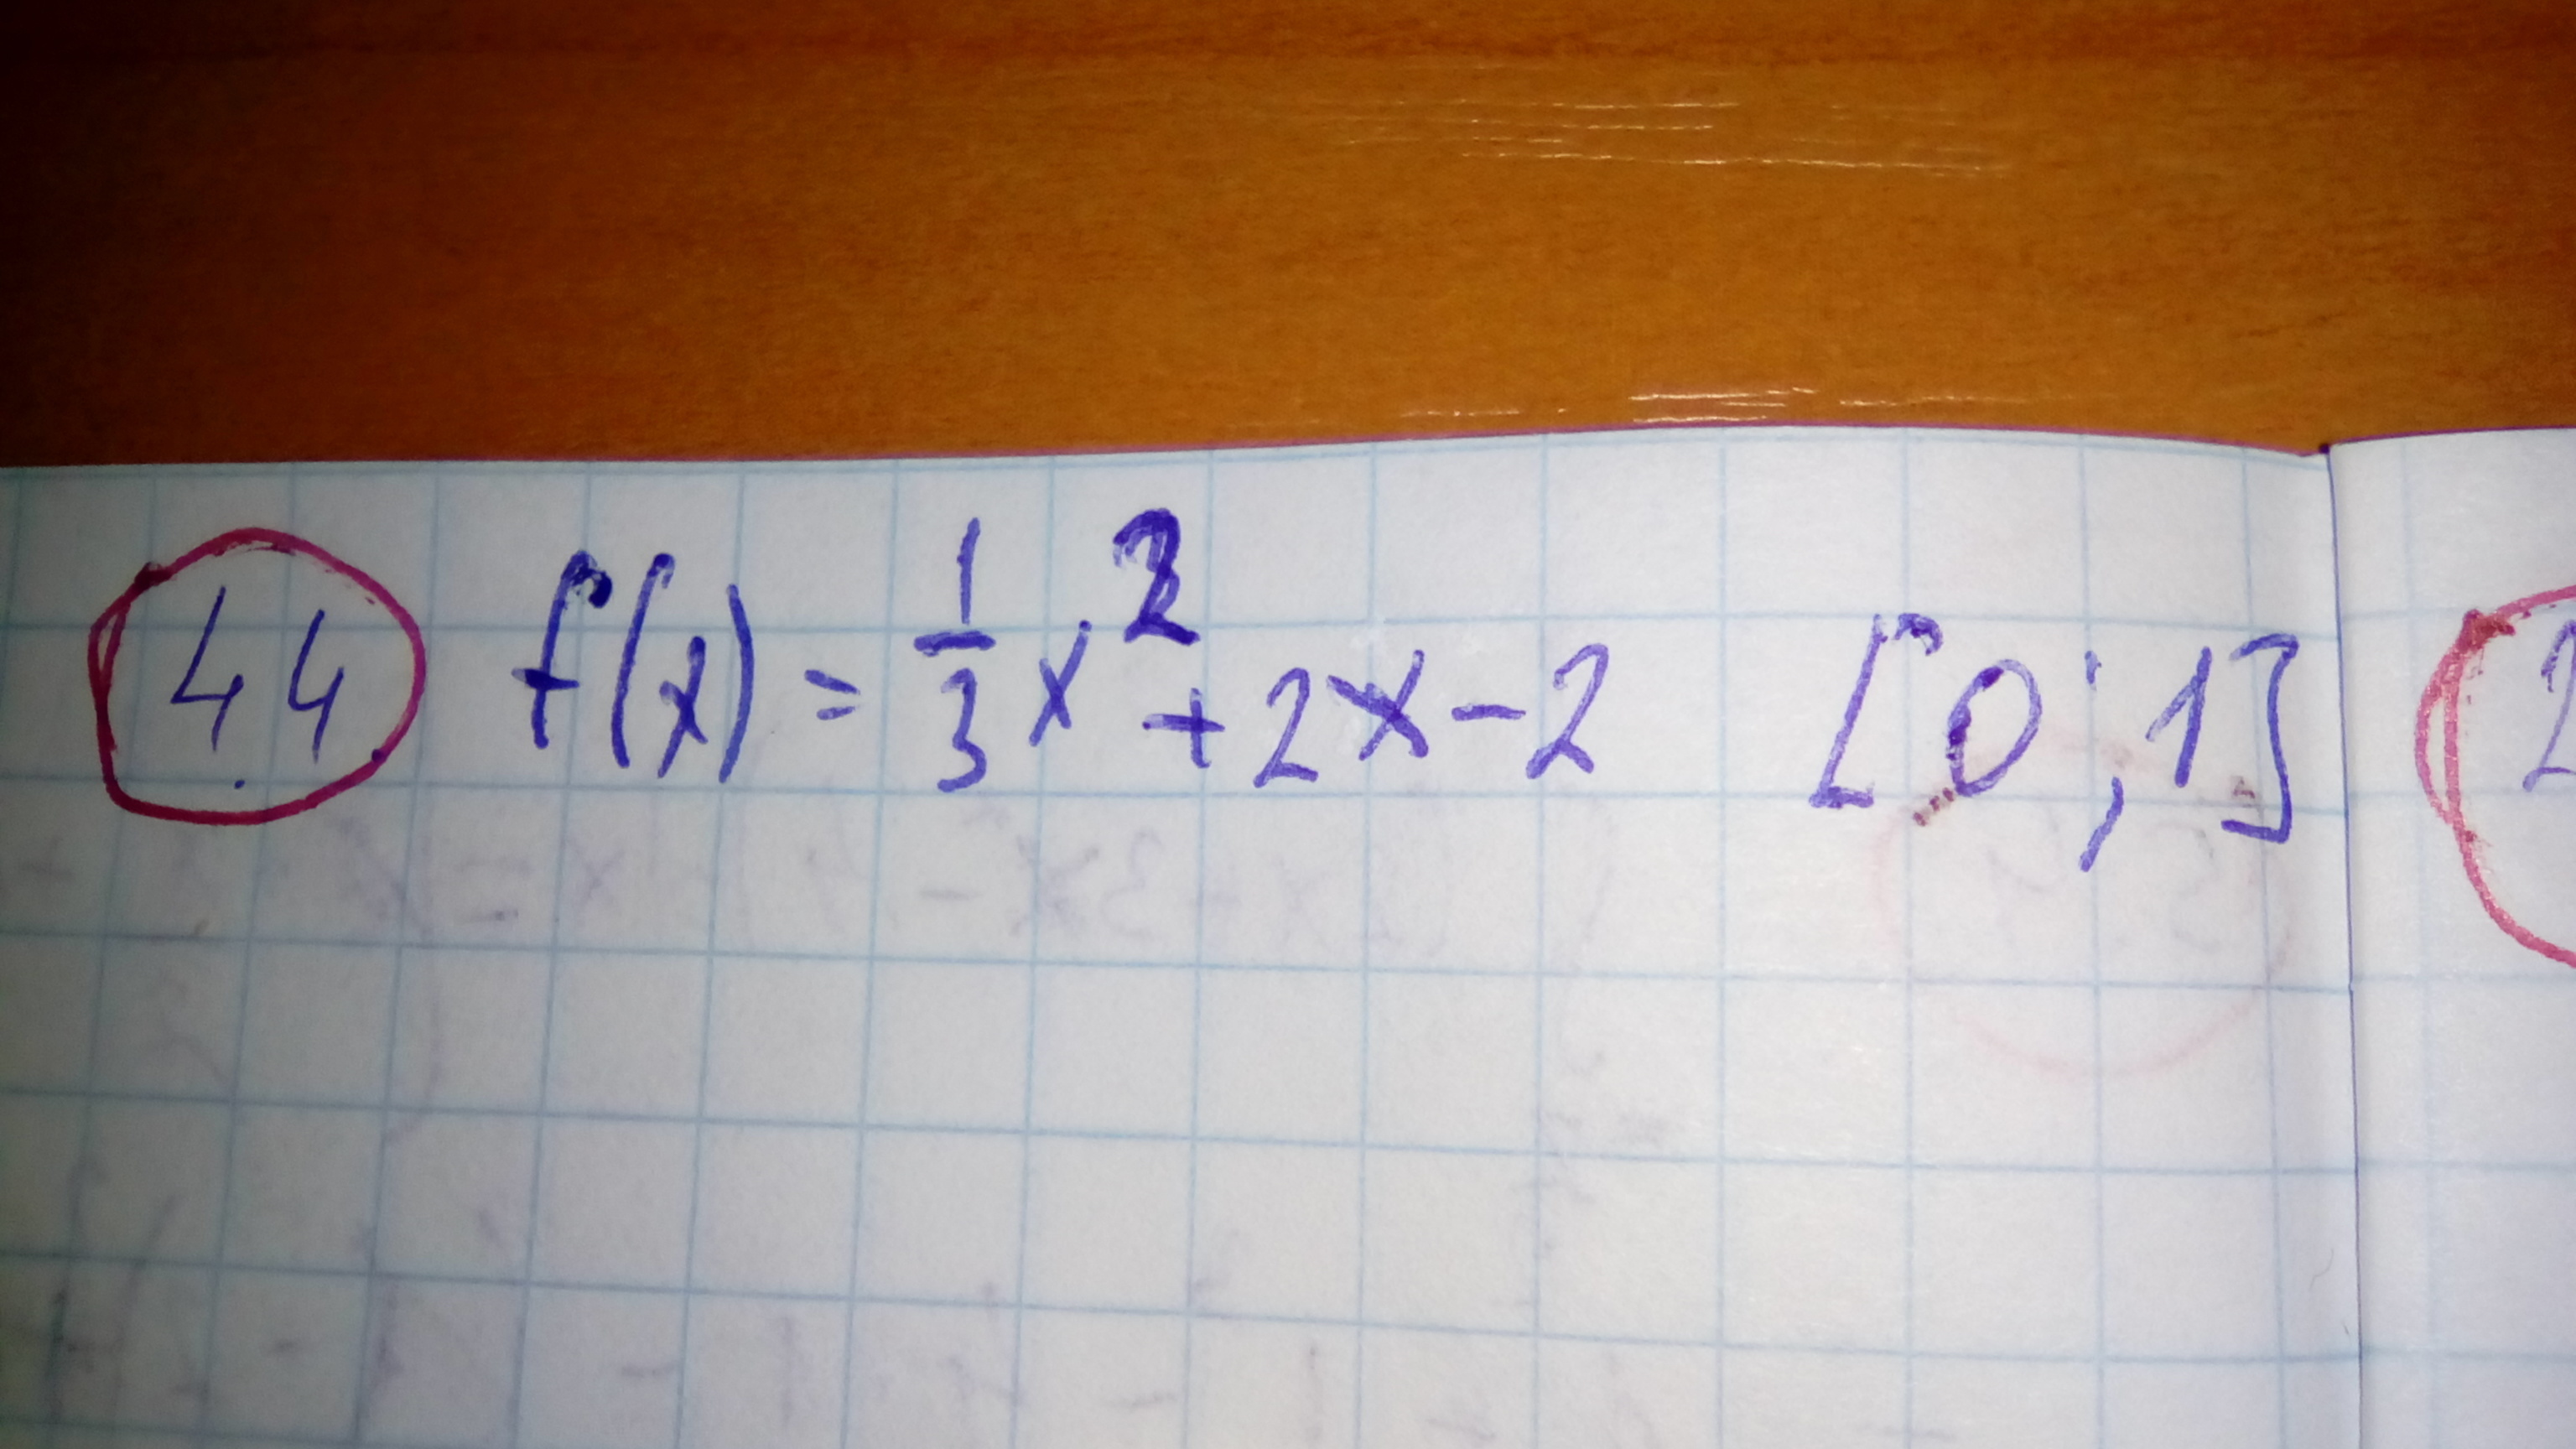 44 f(x) = 1/3 x² + 2x - 2 [0;1]